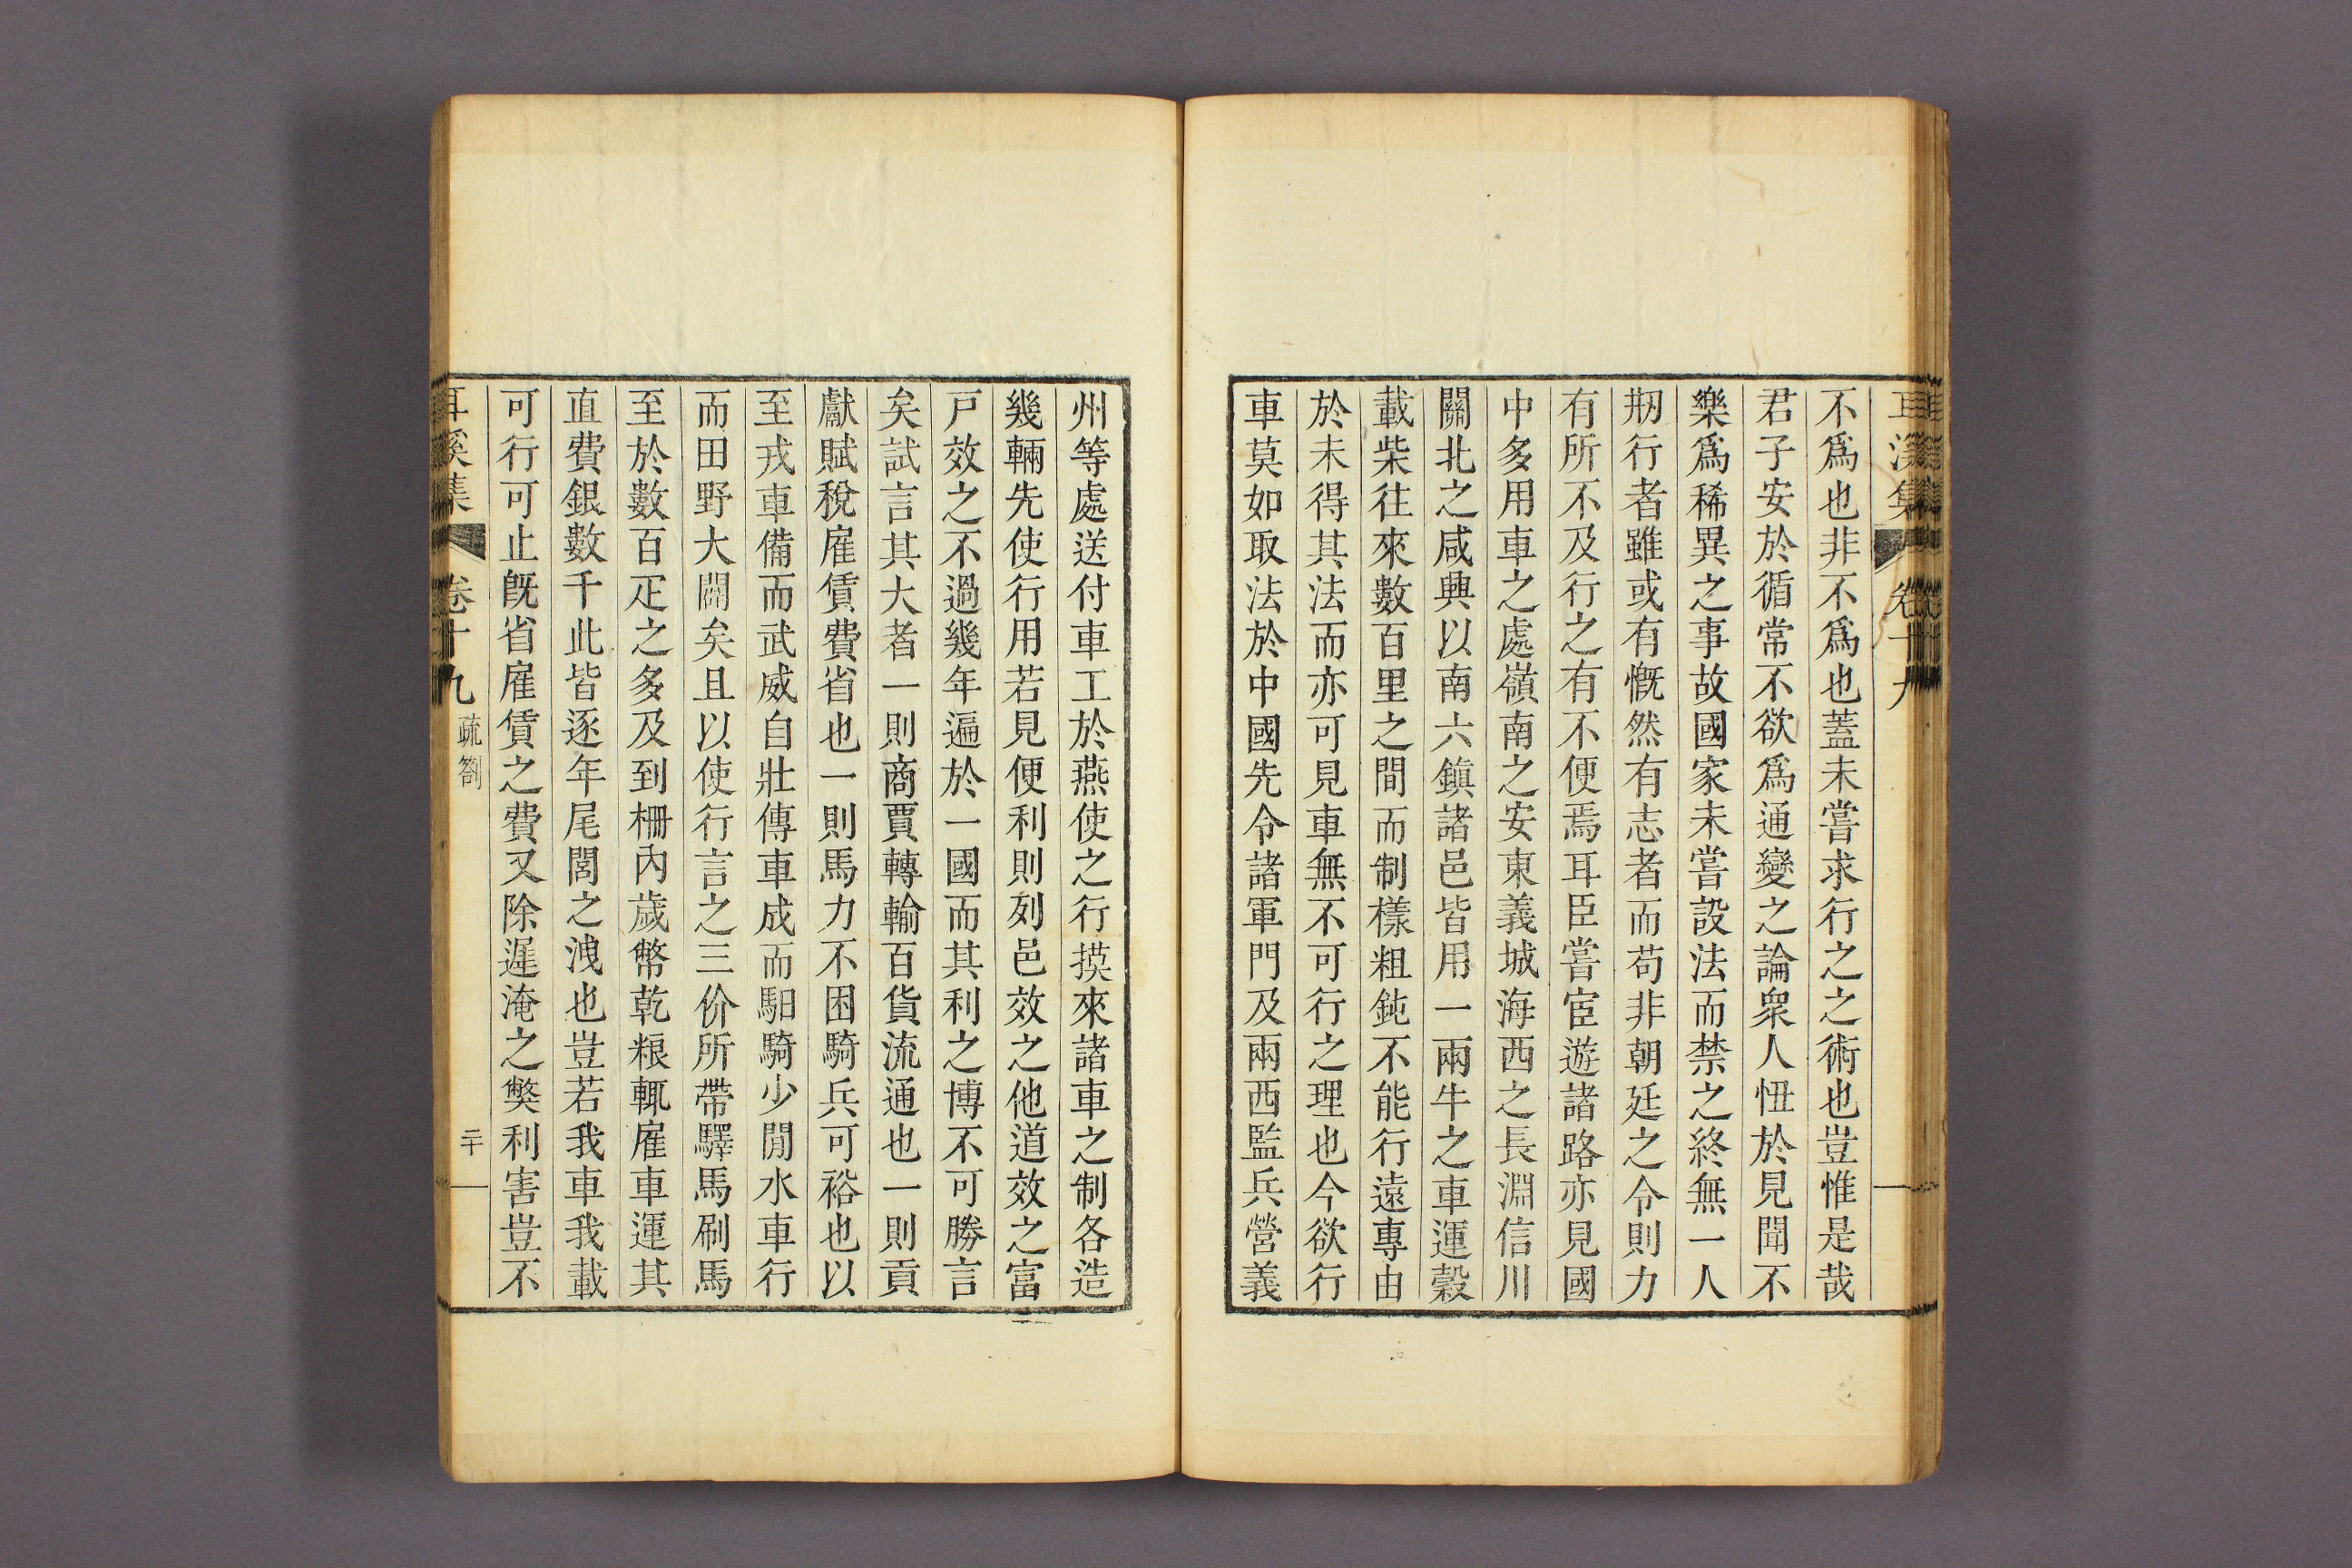 耳溪集 卷十九
不爲也非不爲也蓋未嘗求行之之術也豈惟是哉
君子安於循常不欲爲通變之論衆人忸於見聞不
樂爲稀異之事故國家未嘗設法而禁之終無一人
刱行者雖或有慨然有志者而苟非朝廷之令則力
有所不及行之有不便焉耳臣嘗宦遊諸路亦見國
中多用車之處嶺南之安東義城海西之長淵信川
關北之咸興以南六鎭諸邑皆用一兩牛之車運穀
載柴往來數百里之間而制樣粗鈍不能行遠專由
於未得其法而亦可見車無不可行之理也今欲行
車莫如取法於中國先令諸軍門及兩西監兵營義
州等處送付車工於燕使之行摸來諸車之制各造
幾輛先使行用若見便利則列邑效之他道效之富
戶效之不過幾年遍於一國而其利之博不可勝言
矣試言其大者一則商賈轉輸百貨流通也一則貢
獻賦稅雇賃費省也一則馬力不困騎兵可裕也以
至戎車備而武威自壯傳車成而馹騎少閒水車行
而田野大闢矣且以使行言之三价所帶驛馬刷馬
至於數百疋之多及到柵內歲幣乾粮輒雇車運其
直費銀數千此皆逐年尾閭之洩也豈若我車我載
可行可止旣省雇賃之費又除遲淹之獘利害豈不
耳溪集 卷十九 疏劄 二十